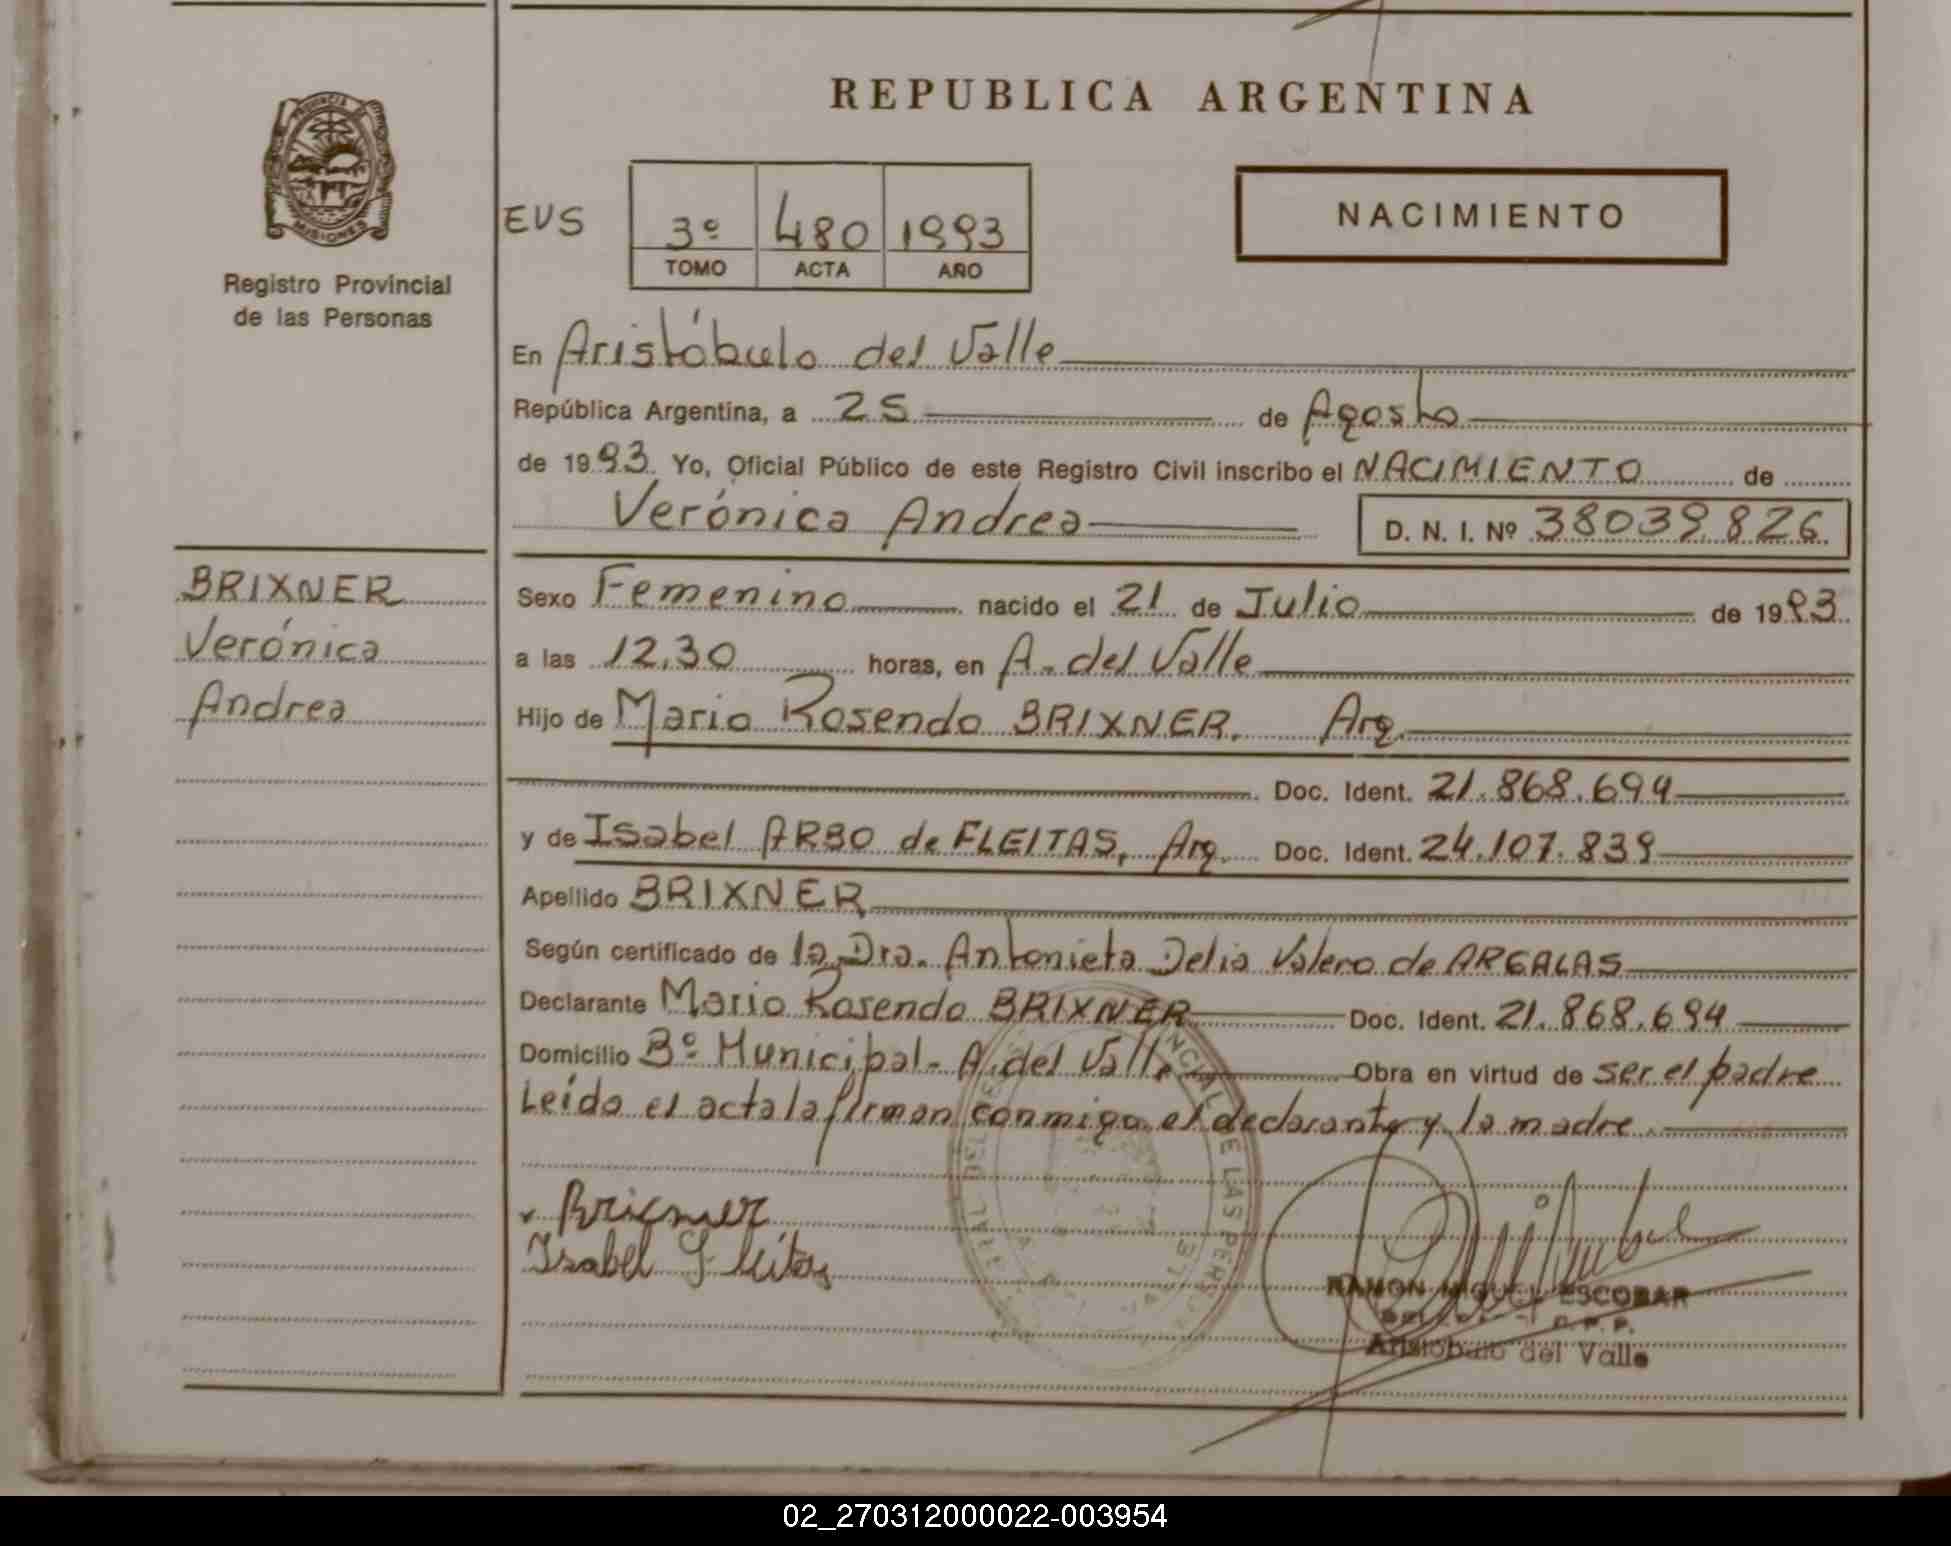 REPUBLICA ARGENTINA
PROVINCIA DE
MISIONES
Registro Provincial
de las Personas
EVS
3º 480 1993
TOMO ACTA AÑO
NACIMIENTO
En Aristóbulo del Valle
República Argentina, a 25 de Agosto
de 1993. Yo, Oficial Público de este Registro Civil inscribo el NACIMIENTO de
Verónica Andrea D. N. I. Nº 38039.826
BRIXNER
Verónica
Andrea
Sexo Femenino nacido el 21 de Julio de 1993
a las 12,30 horas, en A. del Valle
Hijo de Mario Rosendo BRIXNER. Arg.
Doc. Ident. 21.868.694
y de Isabel ARBO de FLEITAS, Arg. Doc. Ident. 24.107.839
Apellido BRIXNER
Según certificado de la Dra. Antonieta Delia Valero de ARGALAS
Declarante Mario Rosendo BRIXNER Doc. Ident. 21.868.694
Domicilio Bº Municipal - A. del Valle Obra en virtud de ser el padre
Leída el acta la firman conmigo el declarante y la madre.
Brixner
Isabel Fleitas
RAMON MIGUEL ESCOBAR
Aristóbulo del Valle
02_270312000022-003954